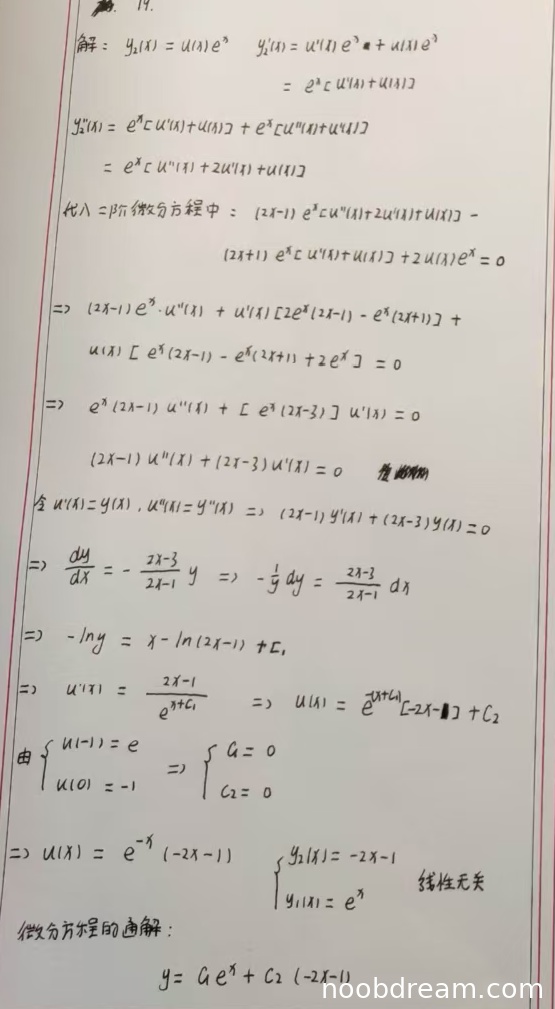 19.
解: y₂(x) = u(x)eˣ  y₂'(x) = u'(x)eˣ + u(x)eˣ
= eˣ[u'(x)+u(x)]
y₂''(x) = eˣ[u'(x)+u(x)] + eˣ[u''(x)+u'(x)]
= eˣ[u''(x)+2u'(x)+u(x)]
代入二阶微分方程中: (2x-1)eˣ[u''(x)+2u'(x)+u(x)] -
(2x+1)eˣ[u'(x)+u(x)]+2u(x)eˣ=0
=> (2x-1)eˣ·u''(x) + u'(x)[2eˣ(2x-1) - eˣ(2x+1)] +
u(x)[eˣ(2x-1) - eˣ(2x+1)+2eˣ] = 0
=> eˣ(2x-1)u''(x) + [eˣ(2x-3)]u'(x) = 0
(2x-1)u''(x)+(2x-3)u'(x) = 0
令u'(x)=y(x), u''(x)=y''(x) => (2x-1)y'(x)+(2x-3)y(x)=0
=> dy/dx = - (2x-3)/(2x-1) y => -1/y dy = (2x-3)/(2x-1) dx
=> -lny = x-ln(2x-1)+C₁
=> u'(x) = (2x-1)/e^(x+C₁) => u(x) = e^-(x+C₁)[-2x-1]+C₂
由 { u(-1)=e  u(0)=-1 => { C₁=0  C₂=0
=> u(x) = e⁻ˣ(-2x-1)  { y₂(x)=-2x-1  y₁(x)=eˣ  线性无关
微分方程的通解:
y= C₁eˣ + C₂(-2x-1)
noobdream.com